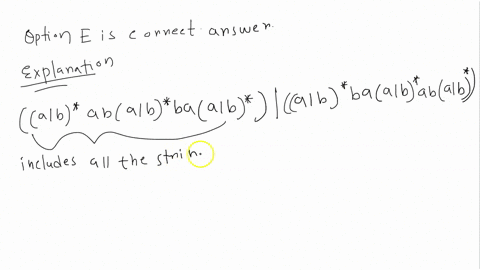 Option E is correct answer.
Explanation
((a|b)* ab(a|b)*ba(a|b)*)|((a|b)*ba(a|b)*ab(a|b)*)
includes all the strin.